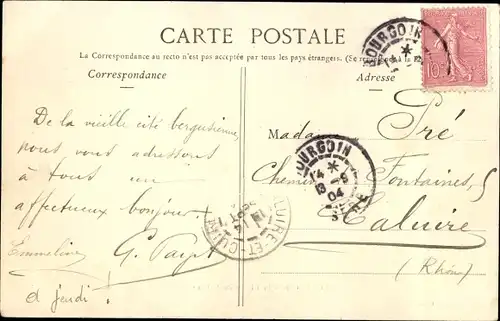 CARTE POSTALE
La Correspondance au recto n'est pas acceptée par tous les pays étrangers. (Se
Correspondance
Adresse
De la vieille cité bergusienne
nous vous adressons
à tous un
affectueux bonjour!
G. Payt
Emmeline
à jeudi!
Madame Pré
Chemin Fontaines, 5
Caluire
(Rhône)
BOURGOIN
10
BOURGOIN
14
13 - 9
04
CALUIRE-ET-CUIRE
14
SEPT